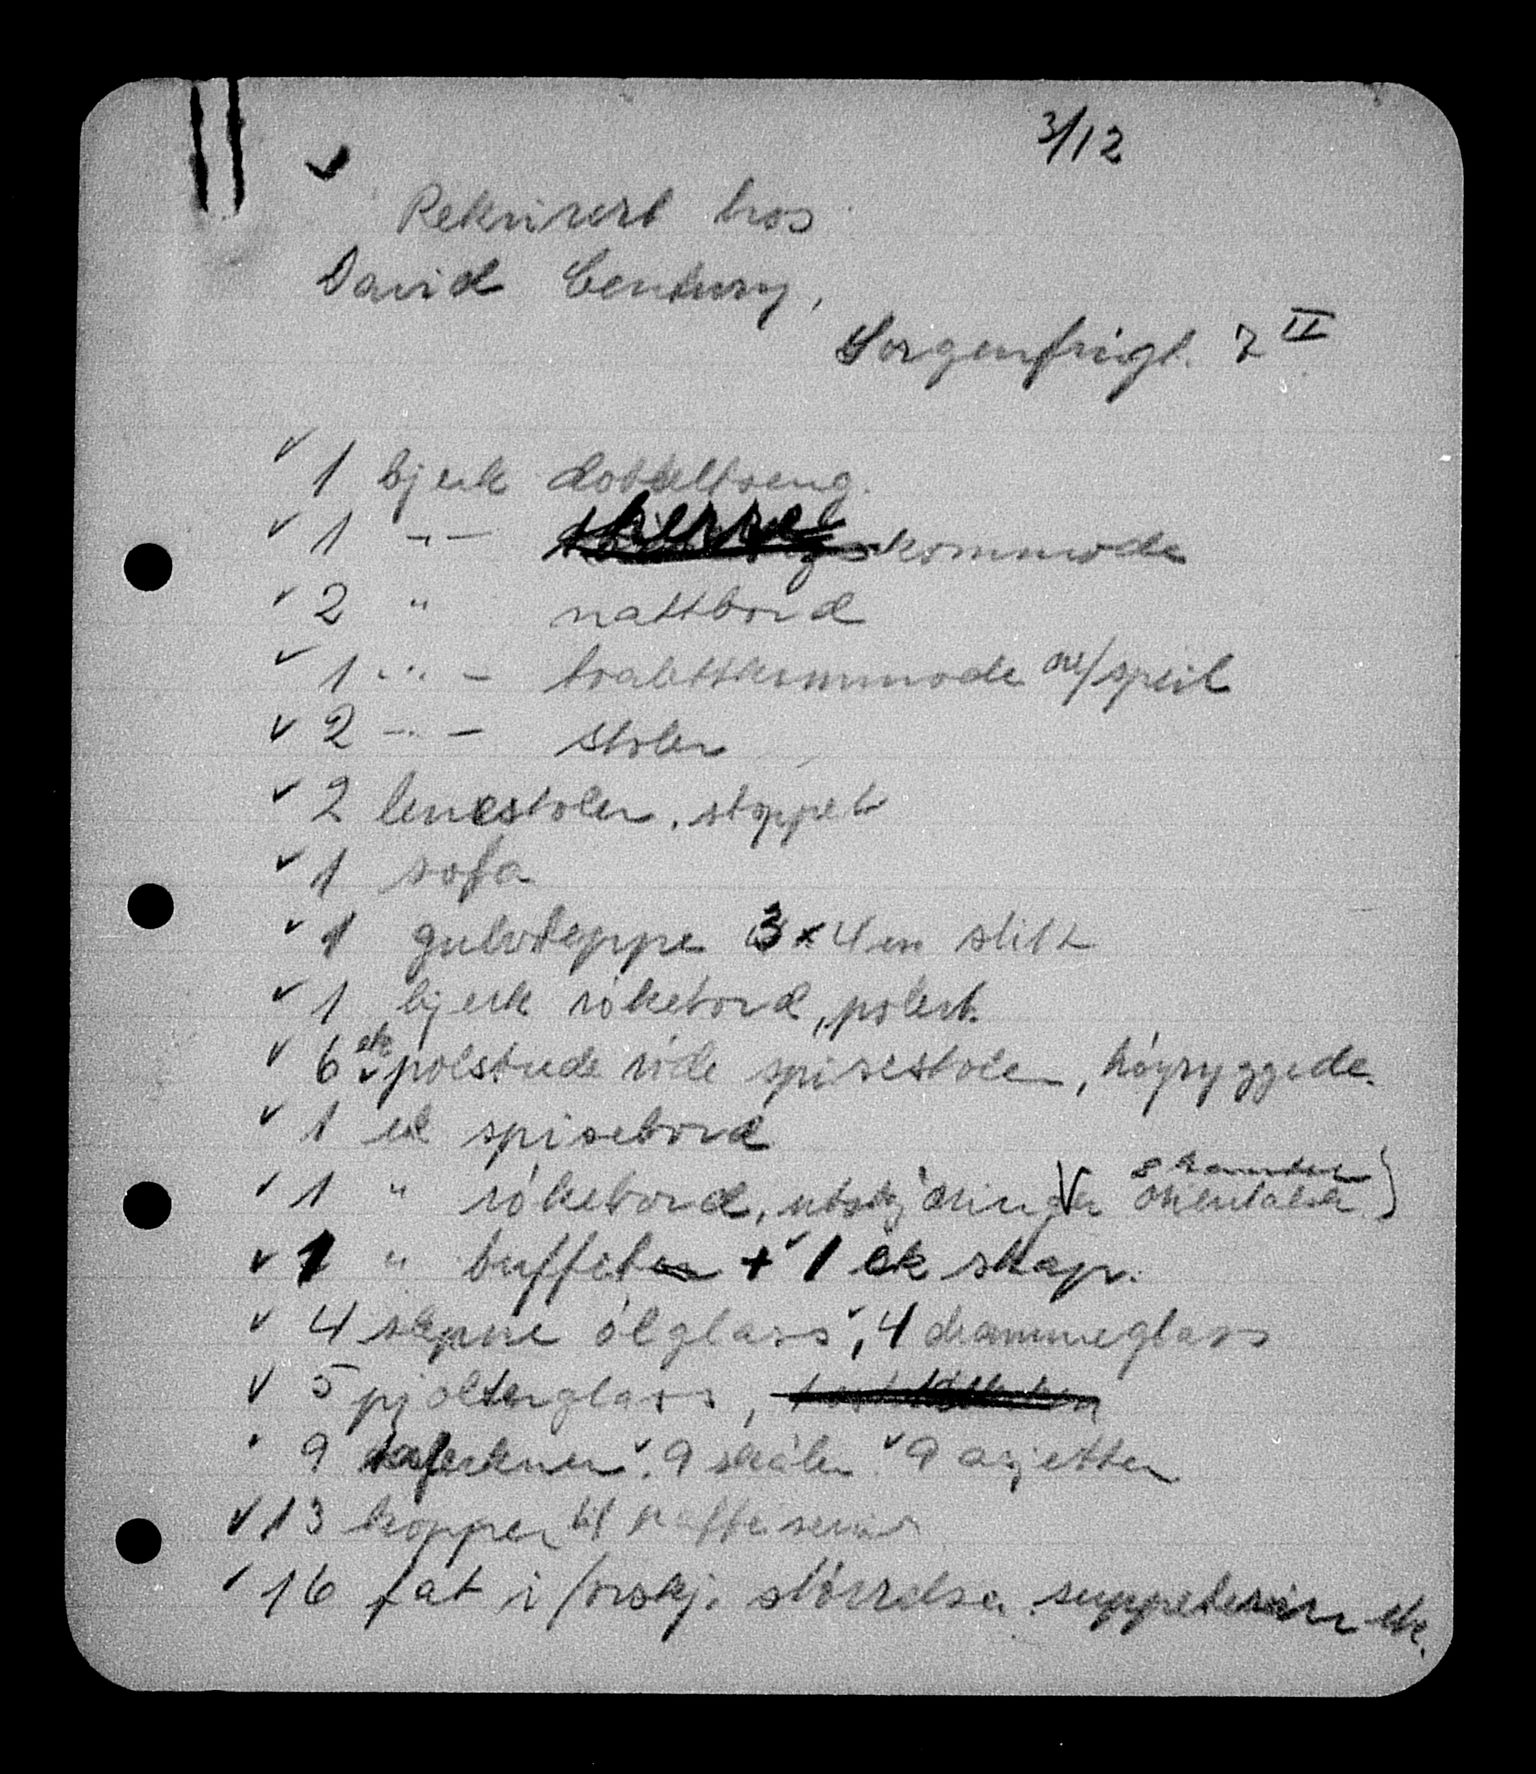 3/12
✓
Rekvirert hos
David Century,
Sorgenfrigt. 7 II
✓ 1 bjerk dobbeltseng.
✓ 1 -"- herrekommode
✓ 2 " nattbord
✓ 1 -"- toalettkommode m/speil
✓ 2 -"- stoler
✓ 2 lenestoler, stoppet
✓ 1 sofa
✓ 1 gulvteppe 3 x 4 m slitt
✓ 1 bjerk rökebord, polert.
✓ 6 ek polstrede röde spisestoler, höyryggede.
✓ 1 ek spisebord
✓ 1 " rökebord, utskjæringer orientalsk)
✓ 1 " buffet + ✓ 1 ek skap.
✓ 4 slepne ölglass, ✓ 4 drammeglass
✓ 5 pjolterglass,
✓ 9 tallerkner. ✓ 9 skåler. ✓ 9 asjetter
✓ 13 kopper til kaffeservise
✓ 16 fat i forskj. störrelse. suppeterrin etc.